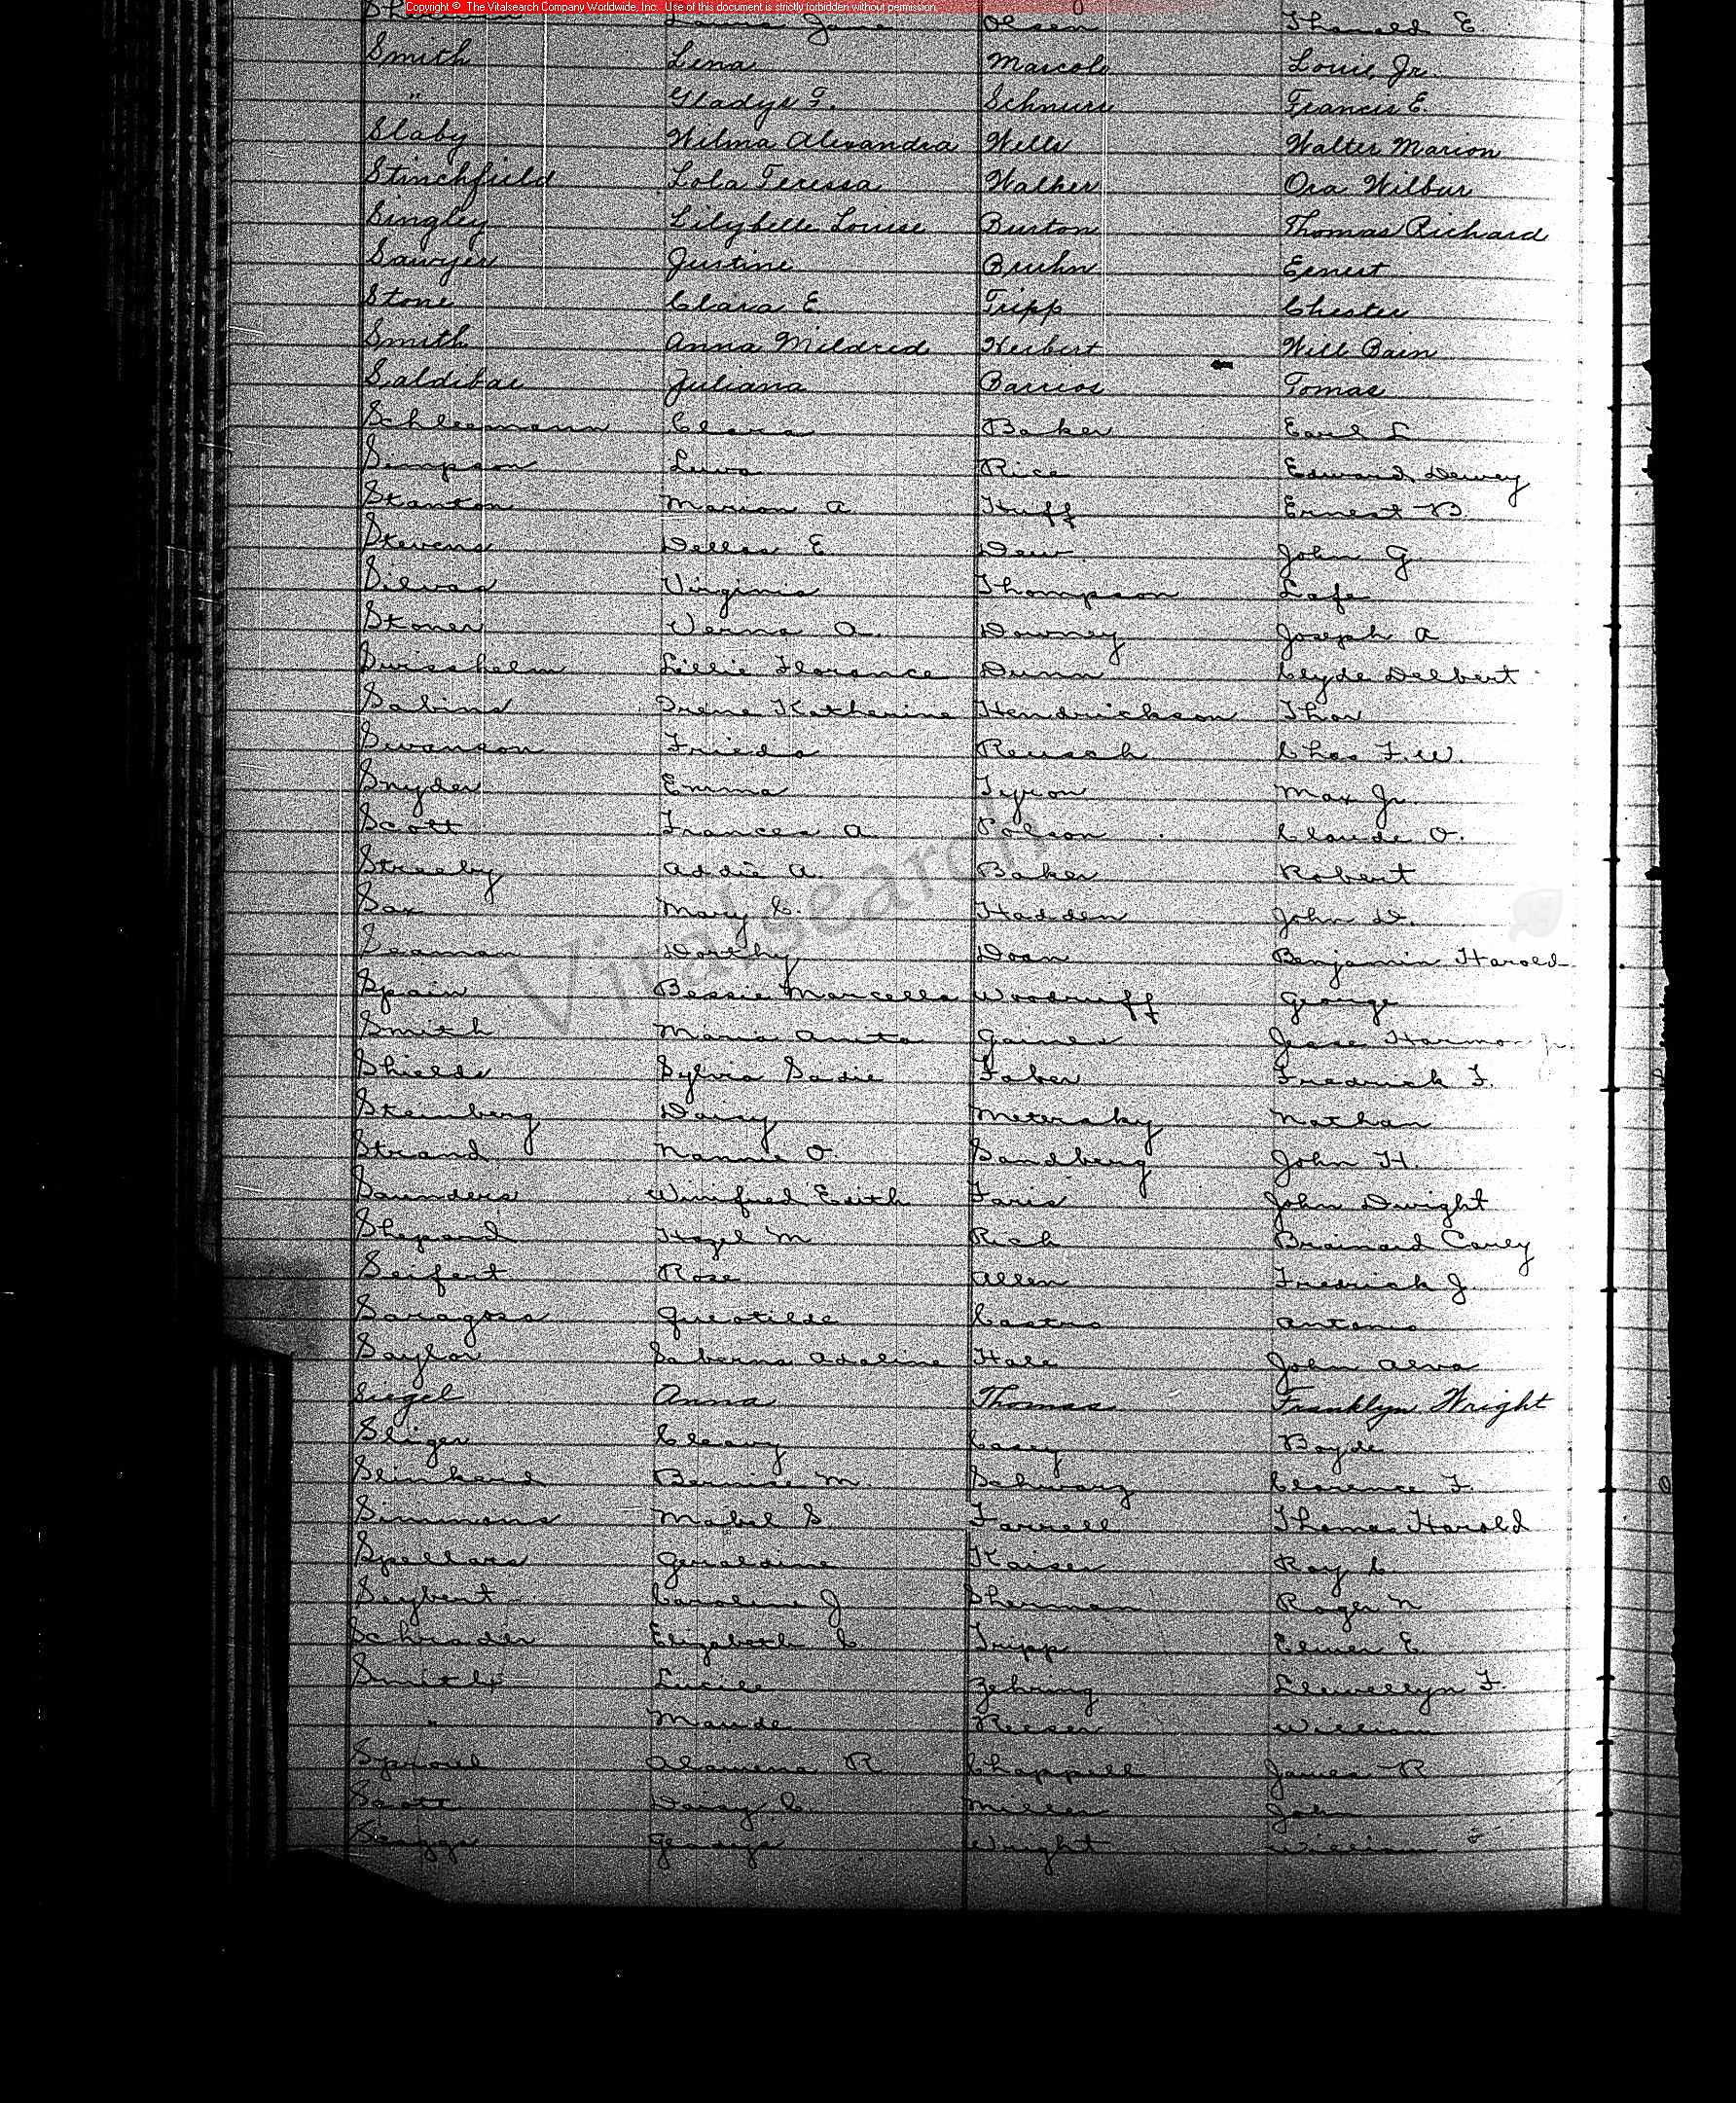 Copyright © The Vitalsearch Company Worldwide, Inc. Use of this document is strictly forbidden without permission.
June Olsen Tharold E
Smith Lena Mascolo Louie, Jr.
" Gladys F. Schnurr Francis E.
Slaby Wilma Alexandra Wells Walter Marion
Stinchfield Lola Teressa Walker Ora Wilbur
Singley Lilybelle Louise Burton Thomas Richard
Sawyer Justine Bruhn Ernest
Stone Clara E. Tripp Chester
Smith Anna Mildred Herbert Will Bain
Saldibar Juliana Barrios Tomas
Schleemann Clara Baker Earl L
Simpson Luva Rice Edward Dewey
Stanton Marion A Huff Ernest B.
Stevens Dellas E. Dew John G
Silvas Virginia Thompson Lafe
Stoner Verna A. Downey Joseph A
Swisshelm Lillie Florence Dunn Clyde Delbert
Sabins Irene Katherine Hendrickson Thor
Swanson Frieda Reusch Chas F.W.
Snyder Emma Tyson Max Jr.
Scott Frances A. Polson Claude O.
Streeby Addie A. Baker Robert
Sax Mary C. Hadden John D.
Seaman Dorthy Doan Benjamin Harold
Spain Bessie Marcella Woodruff George
Smith Maria Anita Gaines Jesse Harmon Jr.
Shields Sylvia Sadie Faber Fredrick F.
Steinberg Daisy Metersky Nathan
Strand Nannie O. Sandberg John H.
Saunders Winifred Edith Faris John Dwight
Shepard Hazel M Rich Brainard Carey
Seifert Rose Allen Fredrick J
Saragosa Castro Antonio
Saylor Saberna Adaline Hale John Alva
Siegel Anna Thomas Franklyn Wright
Sliger Cleavy Casey Boyde
Slinkard Bernice M. Schwarz Clarence F.
Simmons Mabel S. Farrell Thomas Harold
Spellars Geraldine Kaiser Ray C.
Seybert Caroline J Sherman Roger N
Schrader Elizabeth C Tripp Elmer E.
Smith Lucile Zehring Llewellyn F.
" Maude Reeser William
Sproul Alamena R. Chappell James R
Scott Daisy C. Miller John
Scaggs Gladys Wright William
Vitalsearch